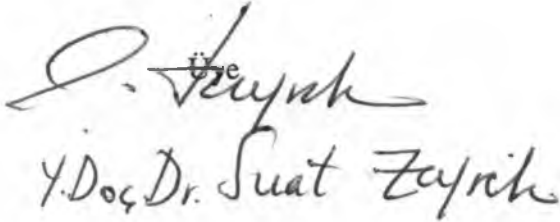 Üye
Y.Doç.Dr. Suat Zeyrek